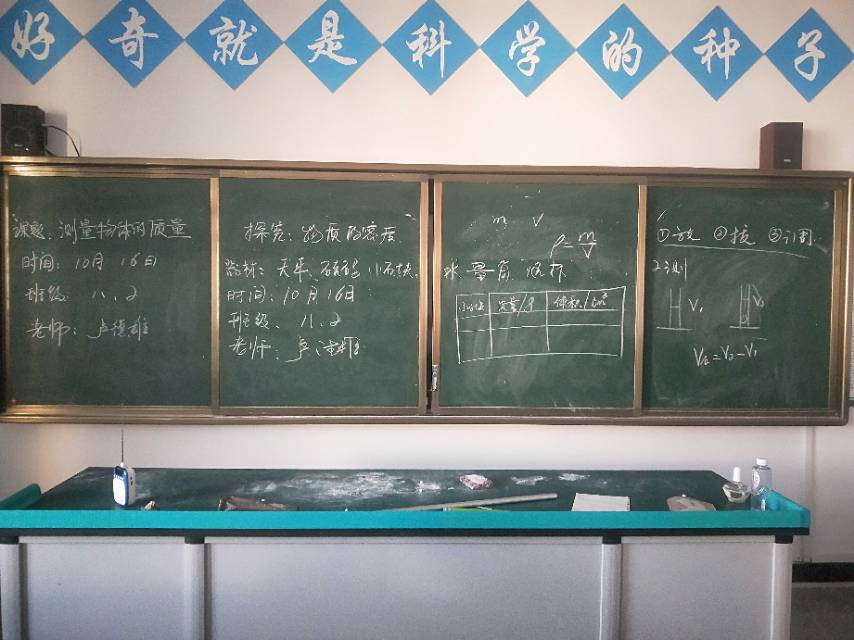 好奇就是科学的种子
课题：测量物体的质量
时间：10月16日
班级：八、2
老师：卢德雄
探究：物质的密度
器材：天平、砝码、小石块、水 量筒 烧杯
时间：10月16日
班级、八、2
老师：卢德雄
m V
ρ=m/V
小石块 质量/g 体积/cm³
①放 ②拨 ③调
2测
V₁ V₂
V石=V₂-V₁